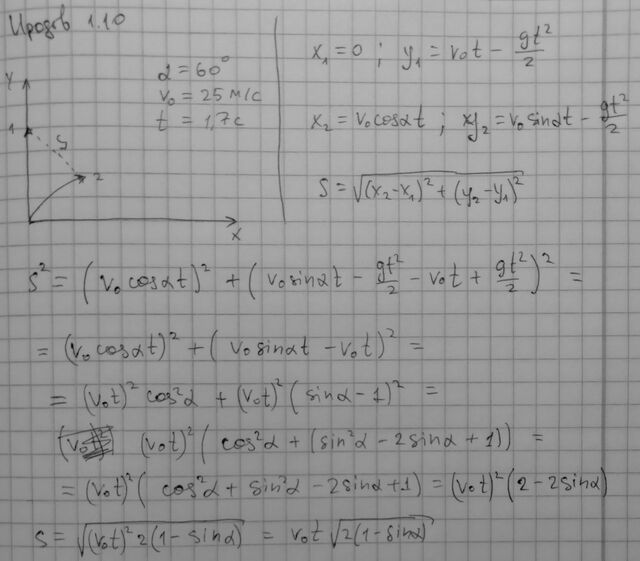 Иродов 1.10
α = 60°
v₀ = 25 м/с
t = 1,7 с
x₁ = 0 ; y₁ = v₀t − gt²/2
x₂ = v₀cosαt ; y₂ = v₀sinαt − gt²/2
S = √((x₂−x₁)² + (y₂−y₁)²)
Y
1
S
2
X
S² = (v₀cosαt)² + (v₀sinαt − gt²/2 − v₀t + gt²/2)² =
= (v₀cosαt)² + (v₀sinαt − v₀t)² =
= (v₀t)² cos²α + (v₀t)² (sinα − 1)² =
(v₀t)² (cos²α + (sin²α − 2sinα + 1)) =
= (v₀t)² (cos²α + sin²α − 2sinα + 1) = (v₀t)² (2 − 2sinα)
S = √((v₀t)² 2(1 − sinα)) = v₀t √(2(1 − sinα))